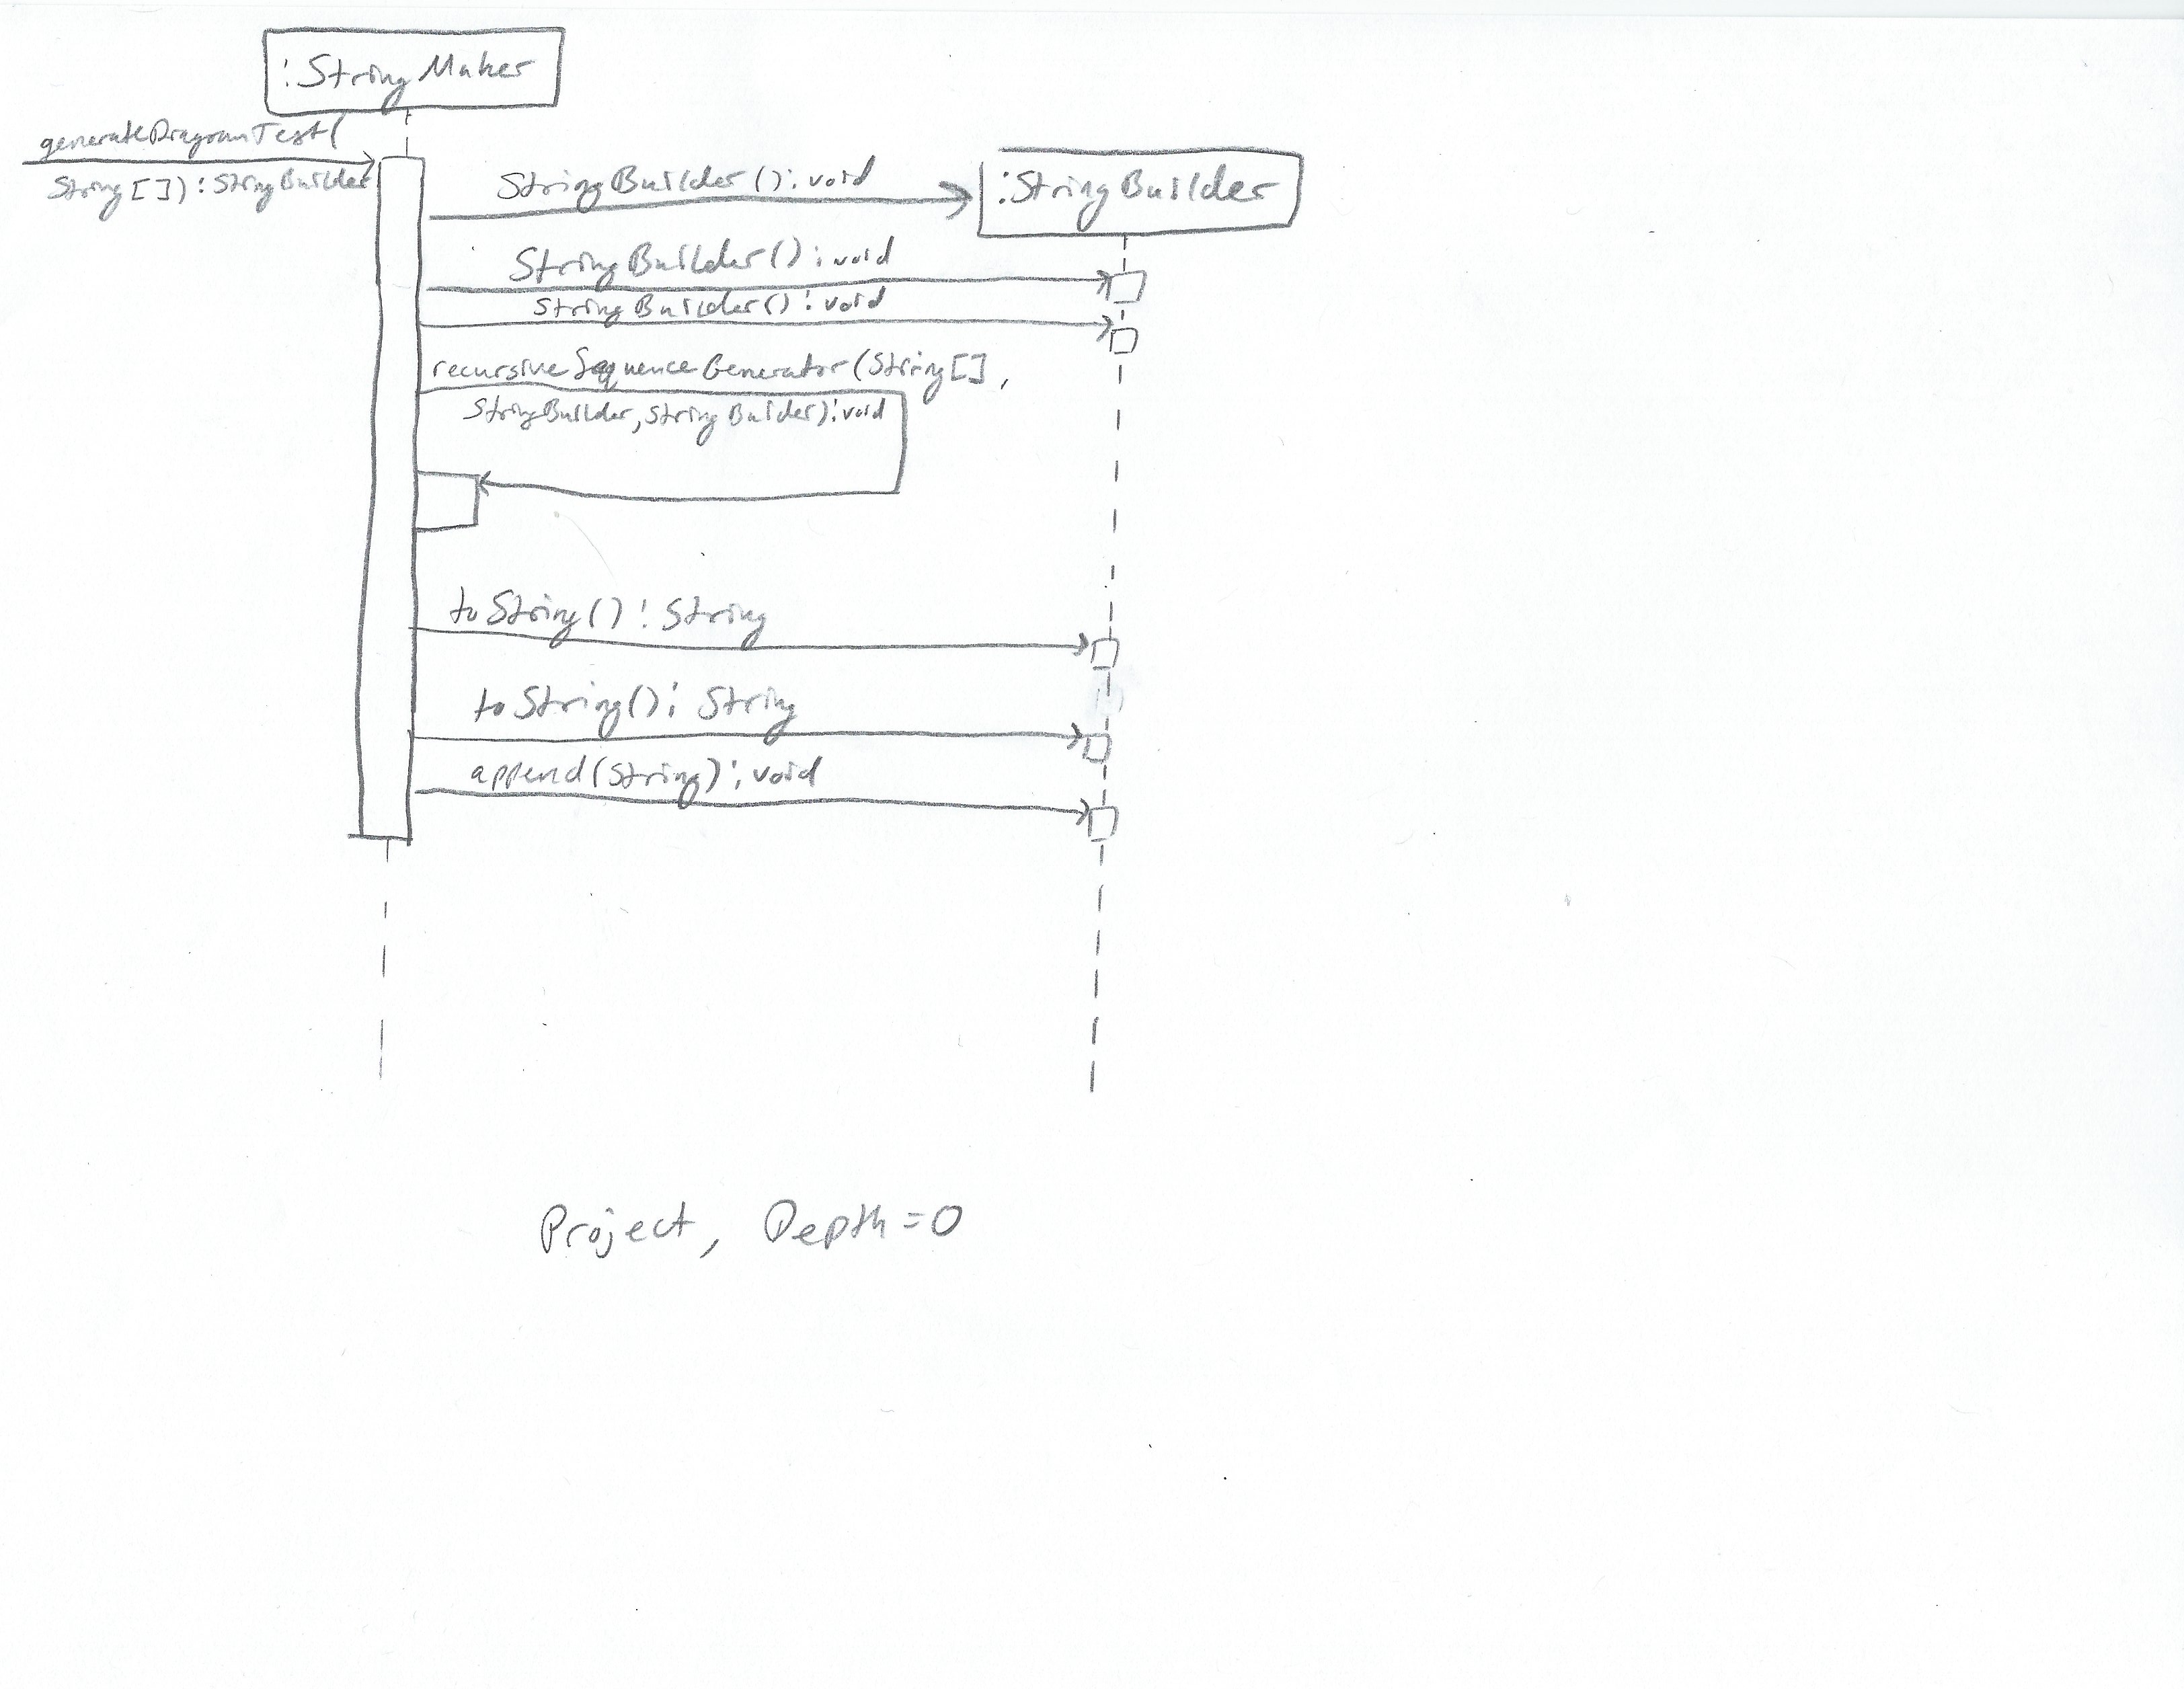 :StringMaker
generateDiagramTest(
String[]):StringBuilder
StringBuilder():void
:StringBuilder
StringBuilder():void
StringBuilder():void
recursiveSequenceGenerator(String[],
StringBuilder,StringBuilder):void
toString():String
toString():String
append(String):void
Project, Depth=0